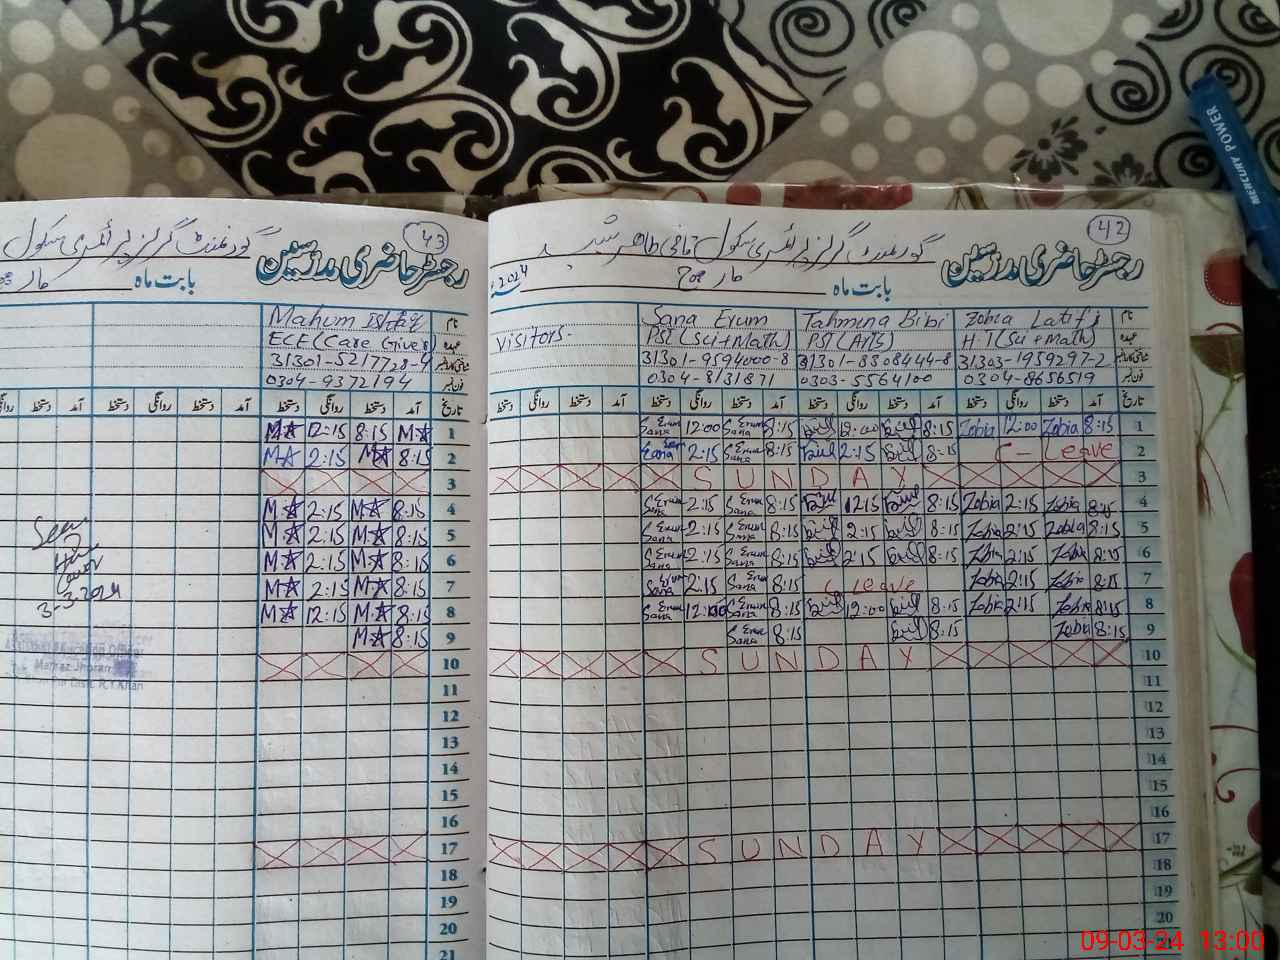 42
گورنمنٹ گرلز پرائمری سکول
رجسٹر حاضری مدرسین
بابت ماہ مارچ 2024
Visitors.
Sana Erum Tahmina Bibi Zobia Latif نام
PST (Sci+Math) PST (Arts) H.T (Sci+Math) عہدہ
31301-9594000-8 31301-8308444-8 31303-1959297-2
0304-8131871 0303-5564100 0304-8656519 فون نمبر
دستخط روانگی دستخط آمد دستخط روانگی دستخط آمد دستخط روانگی دستخط آمد دستخط روانگی دستخط آمد تاریخ
Erum Sana 12:00 Erum Sana 8:15 12:00 8:15 Zobia 12:00 Zobia 8:15 1
Erum Sana 2:15 Erum Sana 8:15 2:15 8:15 C - Leave 2
SUNDAY 3
Erum Sana 2:15 Erum Sana 8:15 1215 8:15 Zobia 2:15 Zobia 8:15 4
Erum Sana 2:15 Erum Sana 8:15 2:15 8:15 Zobia 2:15 Zobia 8:15 5
Erum Sana 2:15 Erum Sana 8:15 2:15 8:15 Zobia 2:15 Zobia 8:15 6
Erum Sana 2:15 Erum Sana 8:15 C Leave Zobia 2:15 Zobia 8:15 7
Erum Sana 12:00 Erum Sana 8:15 12:00 8:15 Zobia 2:15 Zobia 8:15 8
Erum Sana 8:15 8:15 Zobia 8:15 9
SUNDAY 10
11
12
13
14
15
16
SUNDAY 17
18
19
20
21
43
گورنمنٹ گرلز پرائمری سکول
رجسٹر حاضری مدرسین
بابت ماہ مار
Mahum نام
ECE (Care Giver) عہدہ
31301-5217728-4
0304-9372194 فون نمبر
روانگی دستخط آمد دستخط روانگی دستخط آمد دستخط روانگی دستخط آمد تاریخ
M 12:15 8:15 M 1
M 2:15 M 8:15 2
3
M 2:15 M 8:15 4
M 2:15 M 8:15 5
M 2:15 M 8:15 6
M 2:15 M 8:15 7
M 12:15 M 8:15 8
M 8:15 9
10
11
12
13
14
15
16
17
18
19
20
21
Seen
3-3-2024
R.Y.Khan
MERCURY POWER
09-03-24 13:00